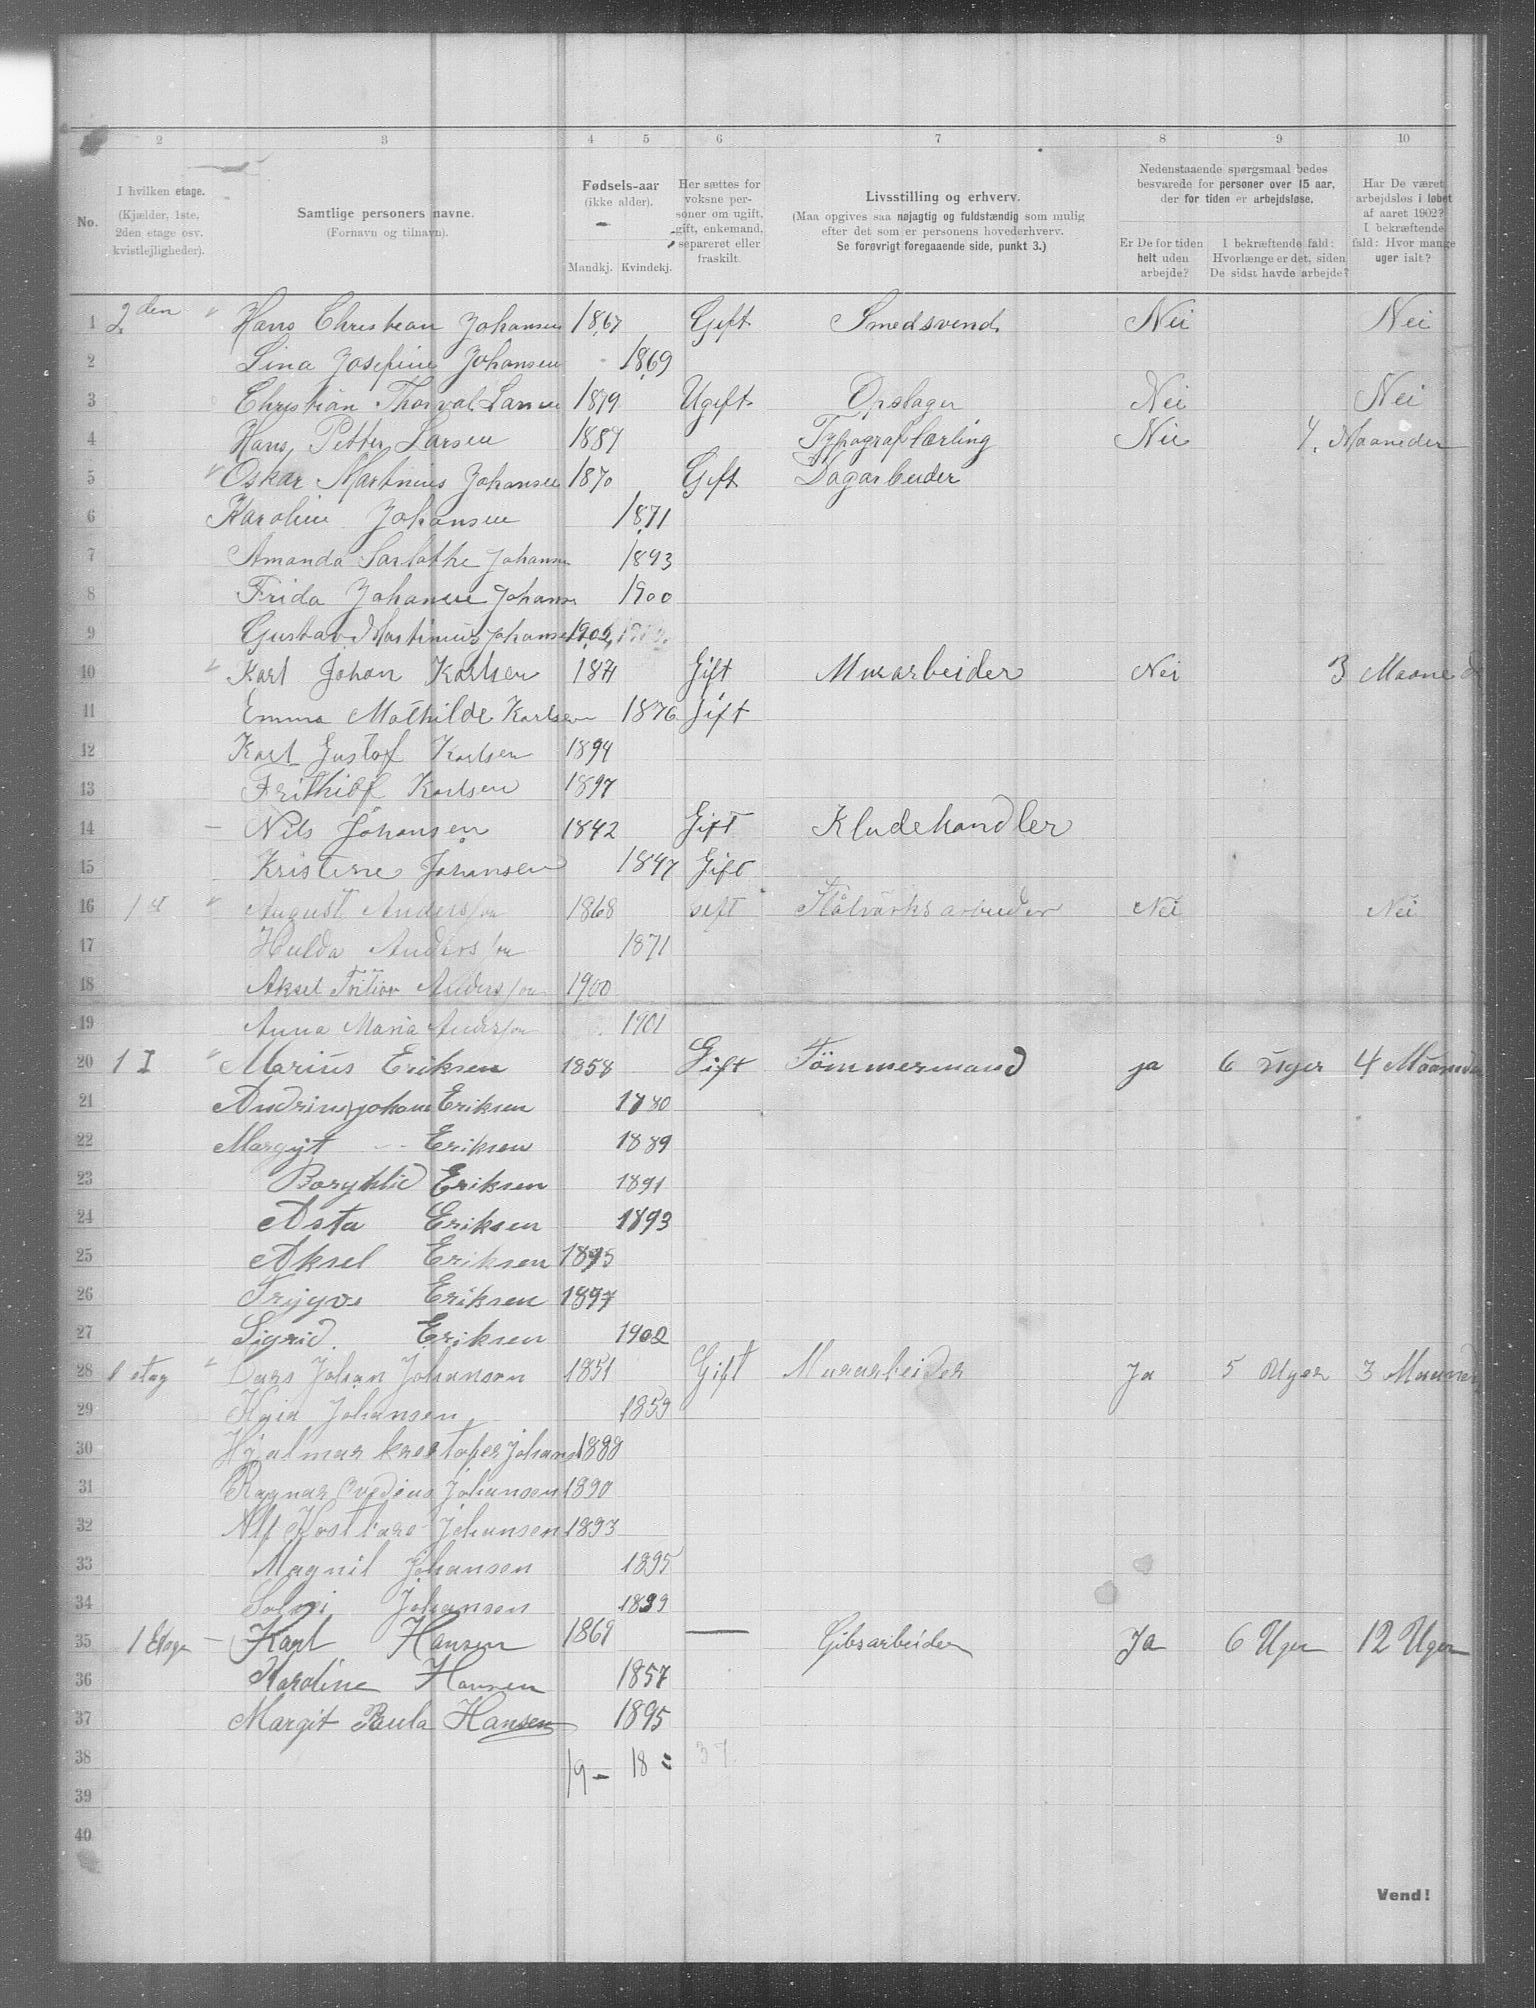 2 3 4 5 6 7 8 9 10
No. I hvilken etage. (Kjælder, 1ste, 2den etage osv. kvistlejligheder). Samtlige personers navne. (Fornavn og tilnavn). Fødsels-aar (ikke alder). Mandkj. Kvindekj. Her sættes for voksne personer om ugift, gift, enkemand, separeret eller fraskilt. Livsstilling og erhverv. (Maa opgives saa nøjagtig og fuldstændig som mulig efter det som er personens hovederhverv. Se forøvrigt foregaaende side, punkt 3.) Nedenstaaende spørgsmaal bedes besvarede for personer over 15 aar, der for tiden er arbejdsløse. Er De for tiden helt uden arbejde? I bekræftende fald: Hvorlænge er det, siden De sidst havde arbejde? Har De været arbejdsløs i løbet af aaret 1902? I bekræftende fald: Hvor mange uger ialt?
1 2den " Hans Christian Johansen 1867 Gift Smedsvend Nei Nei
2 Lina Josefine Johansen 1869
3 Christian Thorval Larsen 1879 Ugift Opslager Nei Nei
4 Hans Petter Larsen 1887 Typograflærling Nei 4. Maaneder
5 " Oskar Martinius Johansen 1870 Gift Dagarbeider
6 Karoline Johansen 1871
7 Amanda Sarlothe Johansen 1893
8 Frida Johansen Johansn 1900
9 Gustav Martinius Johansen 1902
10 " Karl Johan Karlsen 1871 Gift Murarbeider Nei 3 Maaned
11 Emma Mathilde Karlsen 1876 Gift
12 Karl Gustof Karlsen 1894
13 Frithiof Karlsen 1897
14 – Nils Johansen 1842 Gift Kludehandler
15 Kristine Johansen 1847 Gift
16 1 st " August Andersson 1868 Gift Stålvärksarbeider Nei Nei
17 Hulda Andersson 1871
18 Aksel Andersson 1900
19 Anna Maria Andersson 1901
20 1 I " Marius Eriksen 1858 Gift Tömmermand ja 6 uger 4 Maaneder
21 Andrine johane Eriksen 1880
22 Margijt -- Eriksen 1889
23 Borghild Eriksen 1891
24 Asta Eriksen 1893
25 Aksel Eriksen 1895
26 Trygve Eriksen 1897
27 Sigrid. Eriksen 1902
28 1 etag " Lars Johan Johanson 1851 Gift Murarbeider Ja 5 Uger 3 Maaneder
29 Kaia Johansen 1859
30 Hjalmar krestofer Johansn 1888
31 Ragnar Johansen 1890
32 Alf Johansen 1893
33 Magnil Johansen 1895
34 Solvei Johansen 1899
35 1 Etage – Karl Hansen 1869 — Gibsarbeider Ja 6 Uger 12 Uger
36 Karoline Hansen 1857
37 Margit Paula Hansen 1895
38 19 – 18 = 37.
39
40
Vend!